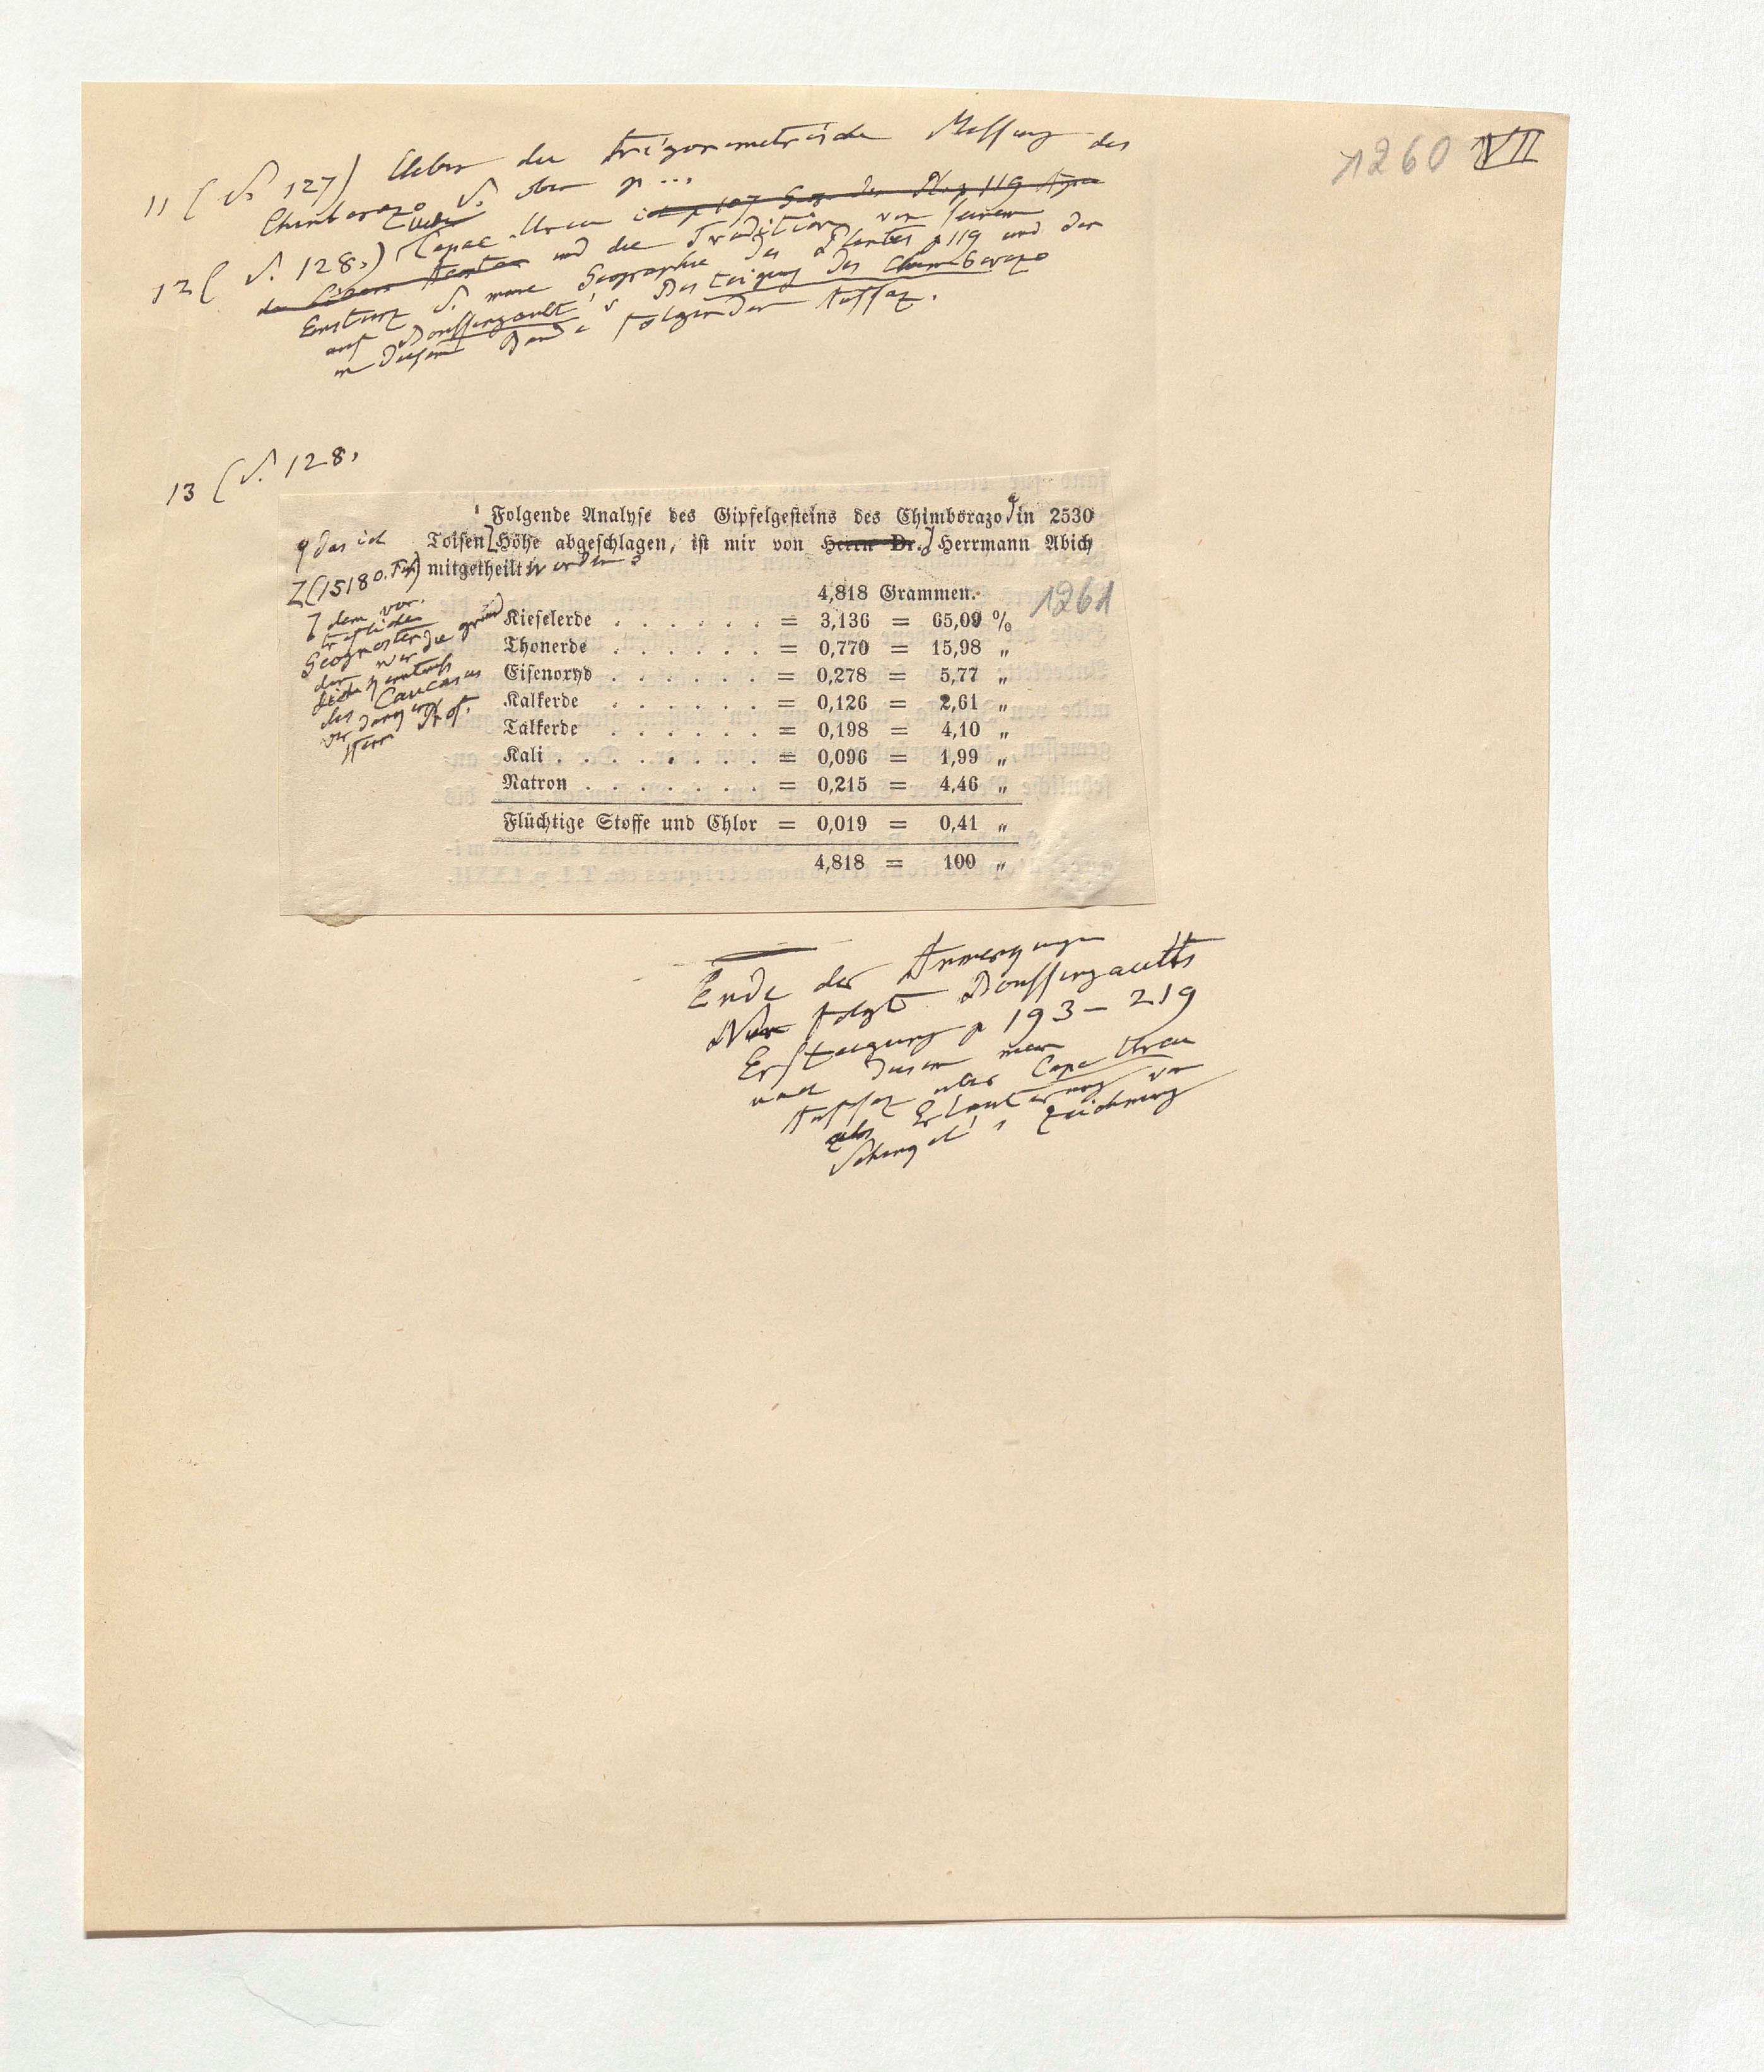 1260 VII
11 (S. 127) Ueber die trigonometrische Messung des
Chimborazo S. oben p ...
12 (S. 128.) Ueber Capac Urcu
und die Tradition von seinem
Einsturz S. meine Geographie des Plantes p 119 und den
auf Boussingault's Besteigung des Chimborazo
in diesem Bande folgenden Aufsaz.
13 (S. 128.
Folgende Analyse des Gipfelgesteins des Chimborazo in 2530
Toisen Höhe abgeschlagen, ist mir von Herrn Dr. Herrmann Abich
mitgetheilt worden
das ich
(15180. Fuß)
dem vor-
treflichen
Geognosten
dem wir die gründ
liche Kenntniß
des Caucasus
verdanken
Herr Prof.
4,818 Grammen.
1261
Kieselerde . . . . . . = 3,136 = 65,09 %
Thonerde . . . . . . = 0,770 = 15,98 „
Eisenoxyd . . . . . . = 0,278 = 5,77 „
Kalkerde . . . . . . = 0,126 = 2,61 „
Talkerde . . . . . . = 0,198 = 4,10 „
Kali . . . . . . . . = 0,096 = 1,99 „
Natron . . . . . . . = 0,215 = 4,46 „
Flüchtige Stoffe und Chlor = 0,019 = 0,41 „
4,818 = 100 „
Ende der Anmerkungen
Nun folgt Boussingaults
Ersteigung p 193 – 219
und dann mein
Aufsaz über Capac Urcu
als Erläuterung von
Zeichnung